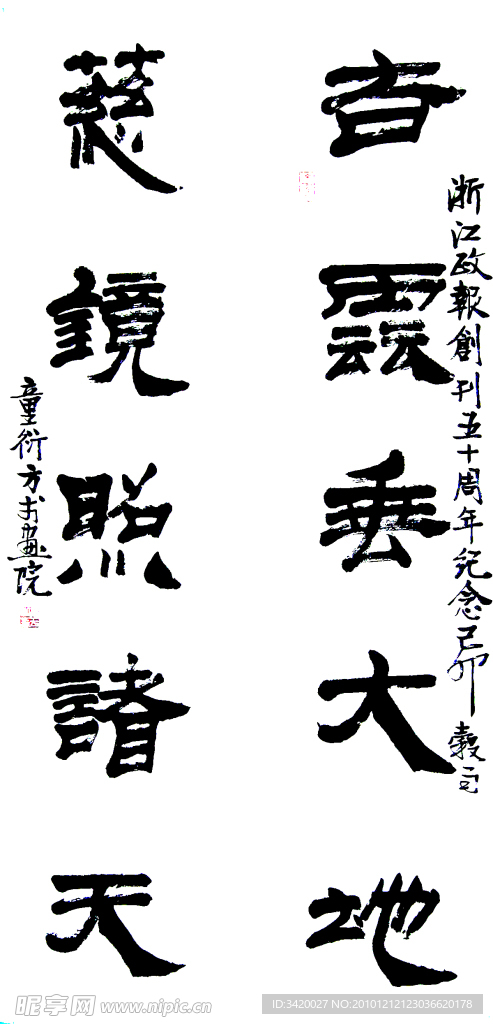 浙江政報創刊五十周年紀念己卯穀旦
吉雲垂大地
慈鏡照諸天
童衍方於畫院
昵享网 www.nipic.cn
ID:3420027 NO:20101212123036620178